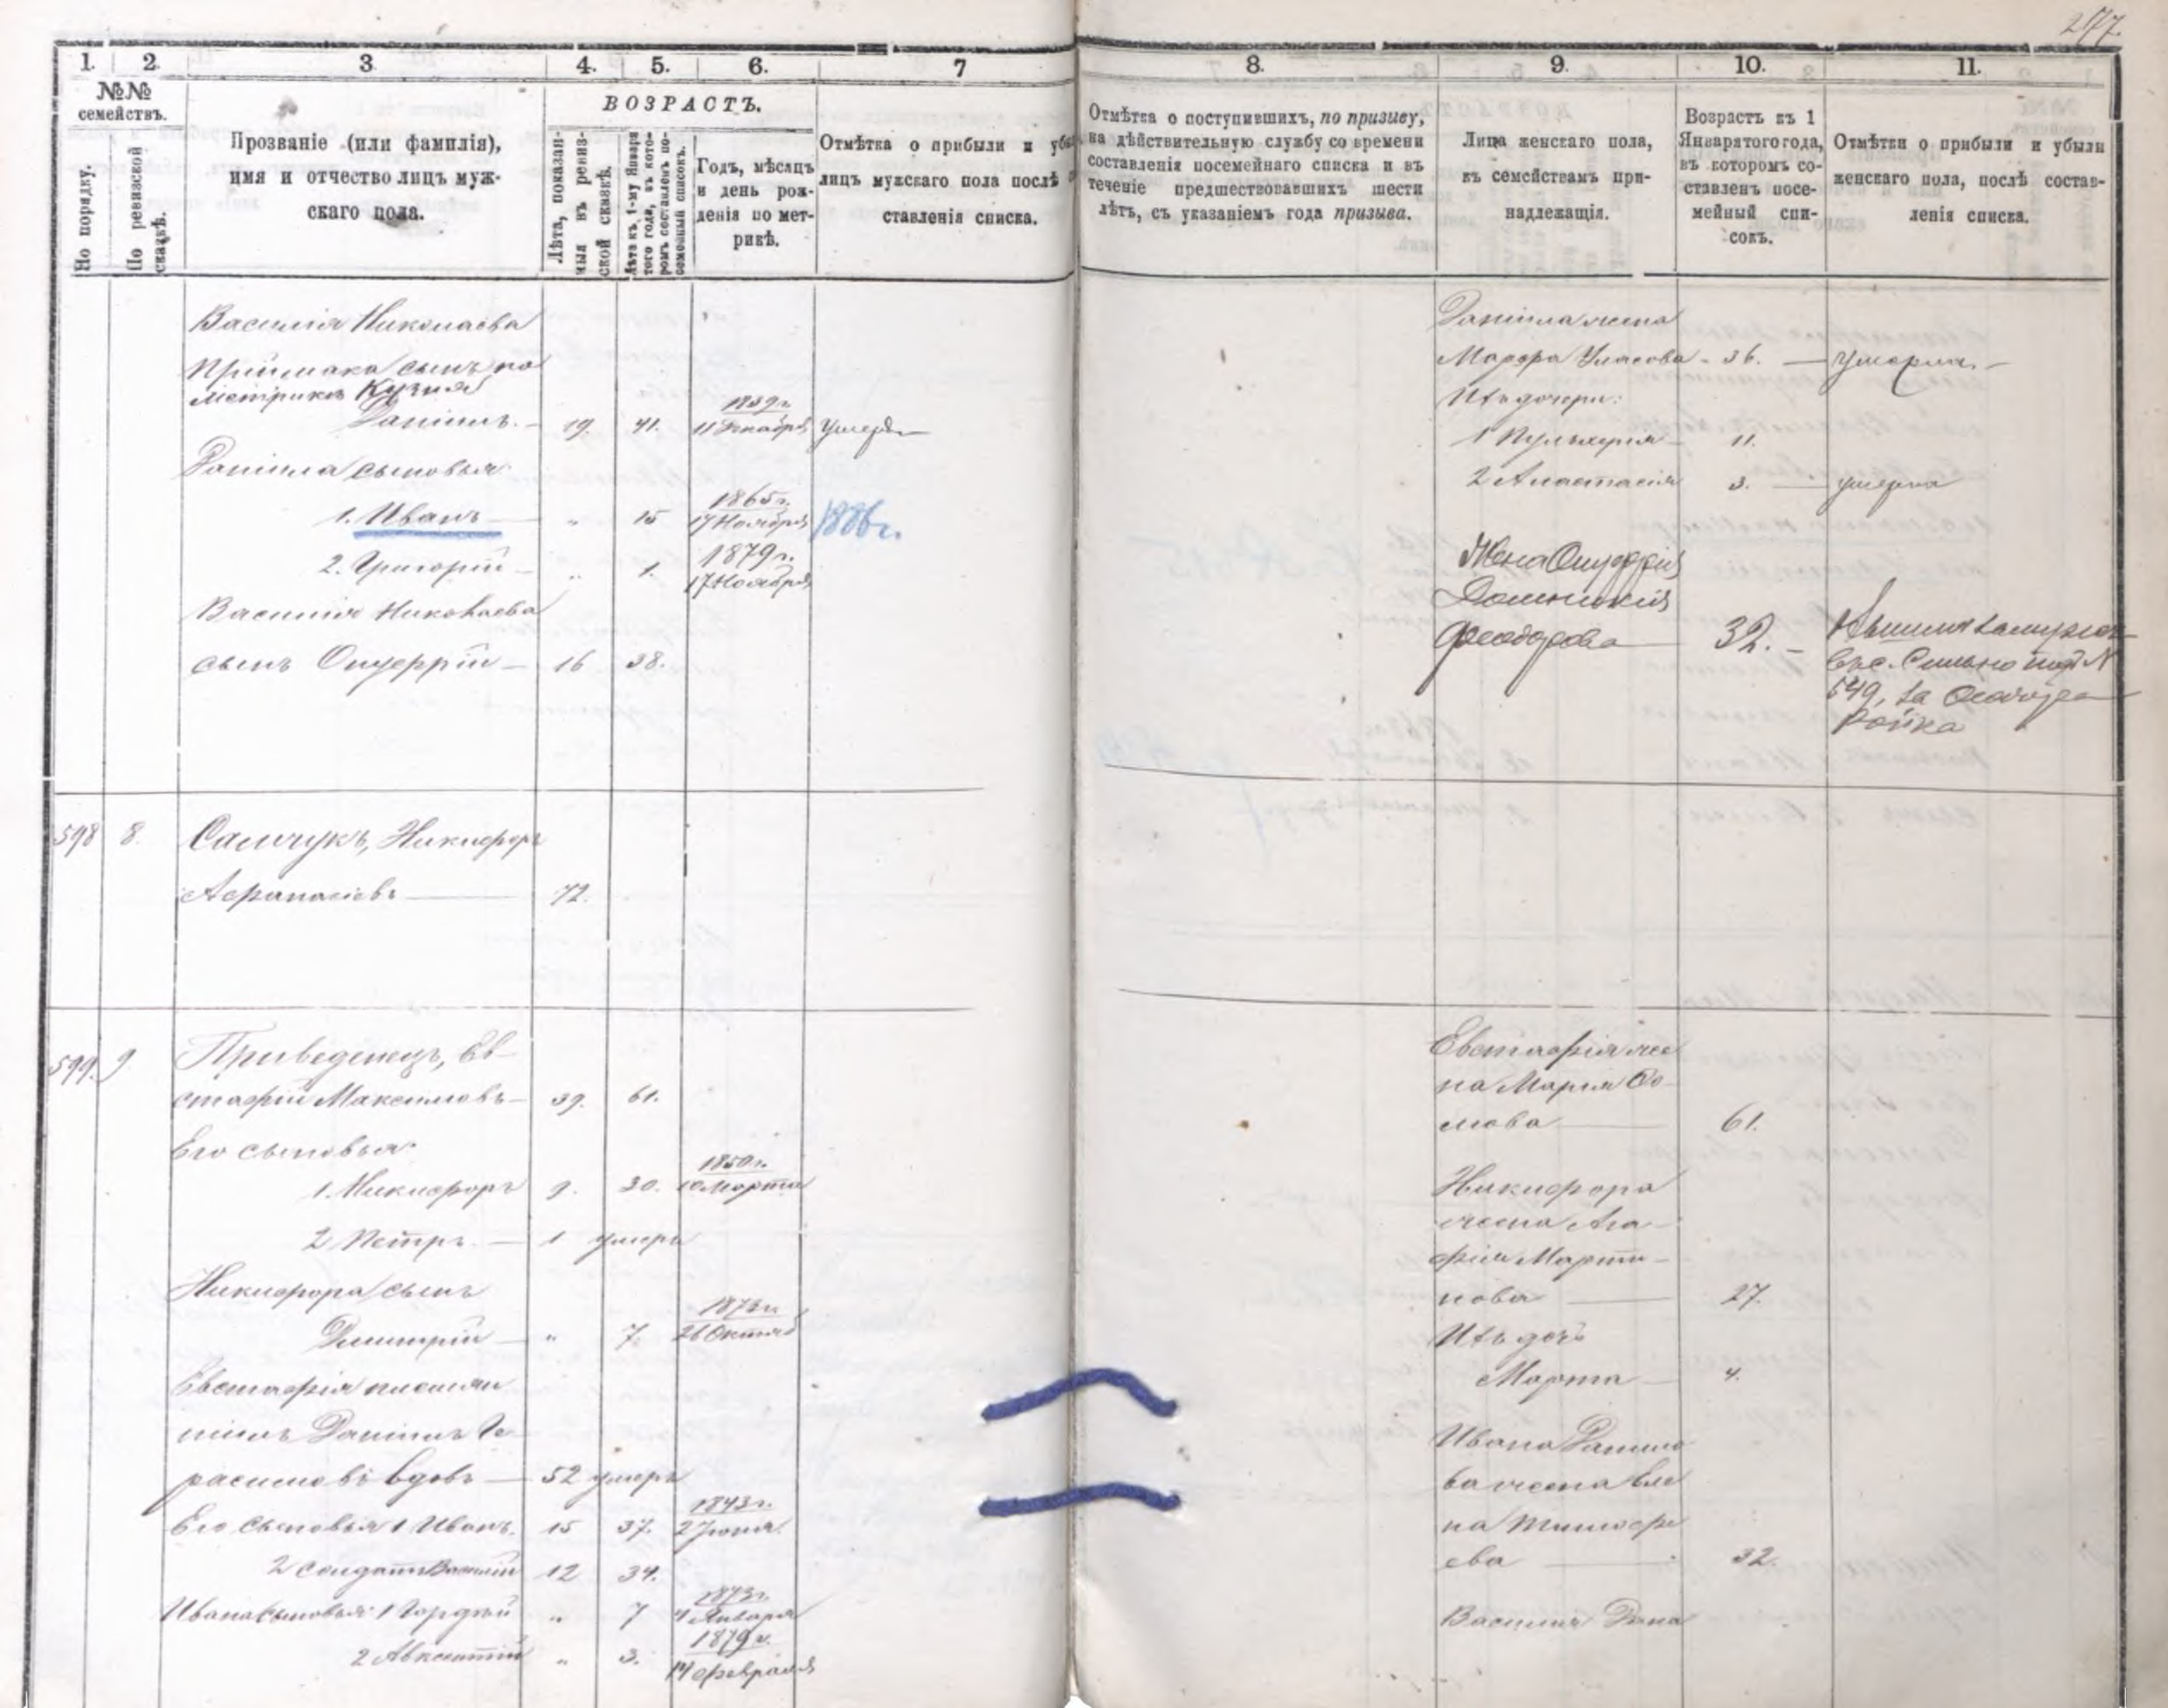 277.
1. 2. 3 4. 5. 6. 7
№№ семействъ.
По порядку.
По ревизской сказкѣ.
Прозваніе (или фамилія),
имя и отчество лицъ муж-
скаго пола.
ВОЗРАСТЪ.
Лѣта, показан-
ныя въ ревиз-
ской сказкѣ.
Лѣта къ 1-му Января
того года, въ кото-
ромъ составленъ по-
семейный списокъ.
Годъ, мѣсяцъ
и день рож-
денія по мет-
рикѣ.
Отмѣтка о прибыли и убы
лицъ мужскаго пола послѣ
ставленія списка.
Василія Николаева
Пріймака сынъ по
метрикѣ Кузьма
Даніилъ. 19. 41. 1839г. 11 Декабря умеръ
Даніила сыновья:
1. Иванъ " 15 1865г. 17 Ноября 1886г.
2. Григорій " 1. 1879г. 17 Ноября
Василія Николаева
сынъ Онуфрій 16 38.
598 8. Самчукъ, Никифоръ
Афанасіевъ 72.
599. 9 Приведенецъ, Ев-
стафій Максимовъ 39. 61.
Его сыновья:
1. Никифоръ 9. 30. 1850г. 10 Марта
2 Петръ. 1 умеръ
Никифора сынъ
Дмитрій " 7. 1873г. 26 Октяб
Евстафія племян
никъ Даніилъ Ге
расимовъ вдовъ 52 умеръ
Его сыновья 1 Иванъ. 15 37. 1843г. 2 Іюня.
2 солдатъ Василій 12 34.
Ивана сыновья: 1 Гордѣй " 7 1873г. 4 Января
2 Авксентій " 3. 1879г. 14 февраля
8. 9. 10. 11.
Отмѣтка о поступившихъ, по призыву,
на дѣйствительную службу со времени
составленія посемейнаго списка и въ
теченіе предшествовавшихъ шести
лѣтъ, съ указаніемъ года призыва.
Лица женскаго пола,
къ семействамъ при-
надлежащія.
Возрастъ къ 1
Января того года,
въ которомъ со-
ставленъ посе-
мейный спи-
сокъ.
Отмѣтки о прибыли и убыли
женскаго пола, послѣ состав-
ленія списка.
Даніила жена
Марфа Власова 36. умерла.
Ихъ дочери:
1 Пульхерія 11.
2 Анастасія 3. умерла
Жена Онуфрія
Домникія
Феодорова 32. Вышла замужъ
въ с. Сильно подъ N
549, за Ѳеодора
Ройка
Евстафія же
на Марія Ѳо
мова 61.
Никифора
жена Ага-
фія Марти-
нова 27.
Ихъ дочь
Марта 4.
Ивана Данило
ва жена Еле
на Тимофе
ева 32.
Василія Дани